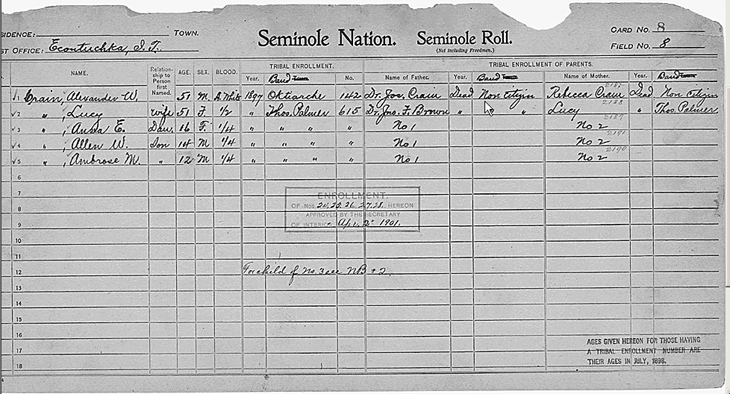 SIDENCE: TOWN. Seminole Nation. Seminole Roll. CARD NO. 8
ST OFFICE: Econtuchka, I.T. (Not Including Freedmen.) FIELD NO. 8
TRIBAL ENROLLMENT. TRIBAL ENROLLMENT OF PARENTS.
NAME. Relationship to Person first Named. AGE. SEX. BLOOD. Year. Band Town No. Name of Father. Year. Band Town Name of Mother. Year. Band Town
1 Crain, Alexander W 51 M. A. White 1897 Oktiarche 142 Dr. Jos. Crain Dead Non Citizen Rebecca Crain Dead Non citizen
2 " , Lucy wife 51 F. 1/2 " Thos. Palmer 615 Dr. Jas. F. Brown " " " Lucy 2188 " Thos Palmer
3 " , E. Dau. 16 F. 1/4 " " " " No 1 No 2
4 " , Allen W. Son 14 M 1/4 " " " " No 1 No 2 2191
5 " , Ambrose M. " 12 M 1/4 " " " " No 1 No 2 2190
6
7
8
9
10
11
12
13
14
15
16
17
18
ENROLLMENT
OF NOS. HEREON
APPROVED BY THE SECRETARY
OF INTERIOR Apr. 2" 1901.
For child of No. 3 see NB # 2
AGES GIVEN HEREON FOR THOSE HAVING
A TRIBAL ENROLLMENT NUMBER ARE
THEIR AGES IN JULY, 1898.